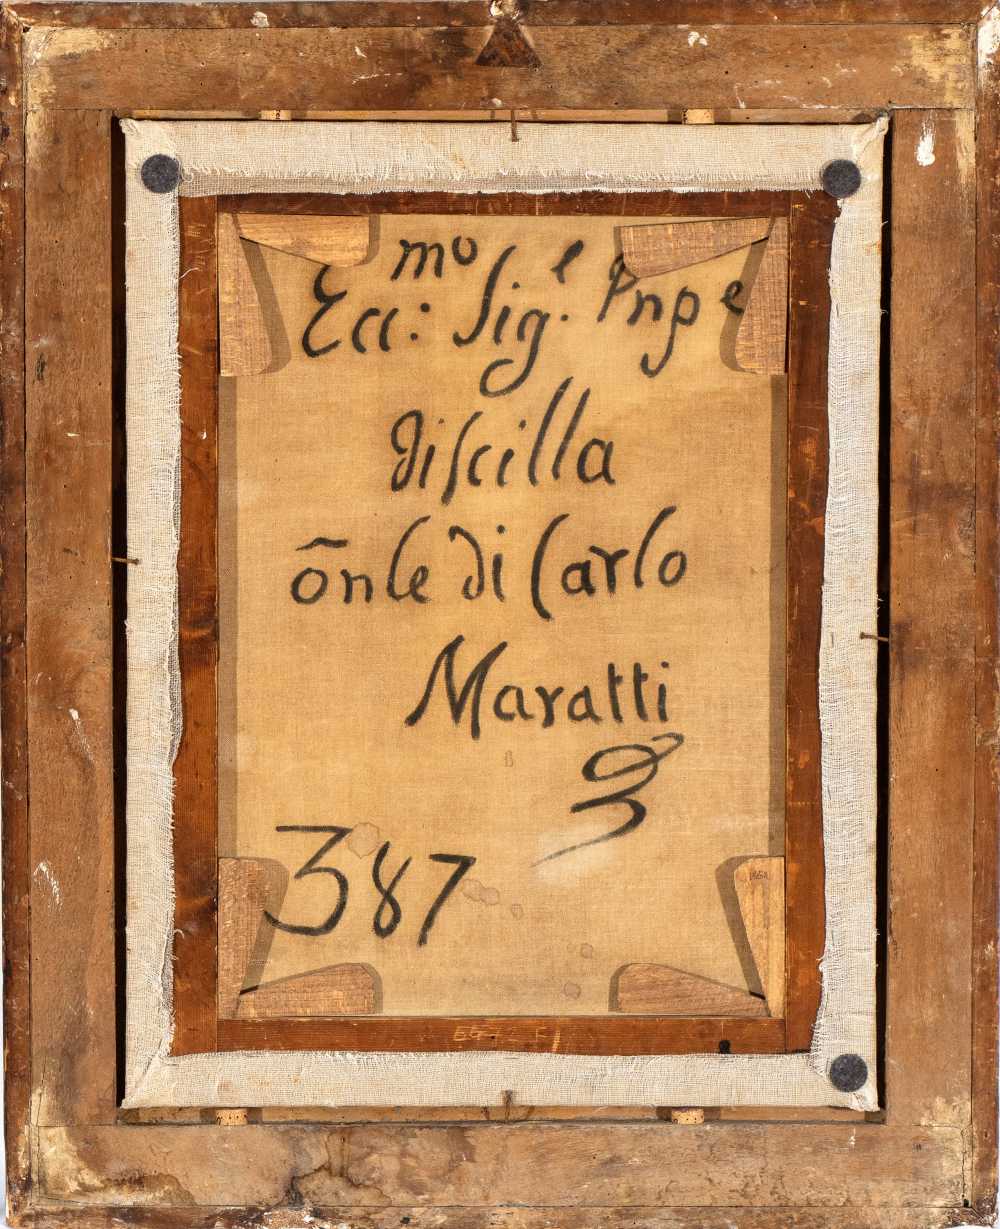 Ecc:mo Sig.e Pnpe
di scilla
õnle di Carlo
Maratti
387